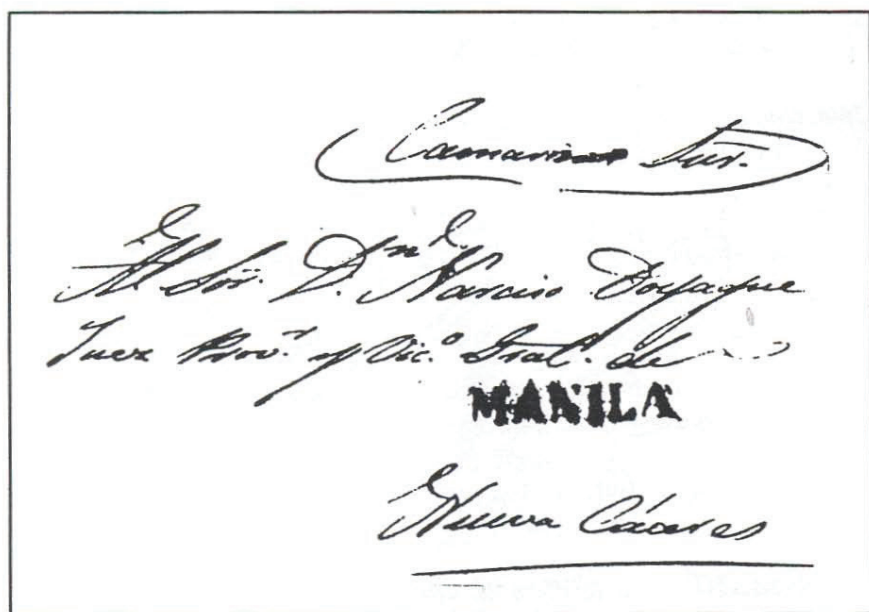 Camarines Sur.
Al Sōr. Dⁿ. Narciso Doyague
Juez Prov.ʳ y Vic.º Gral. de
MANILA
Nueva Cáceres